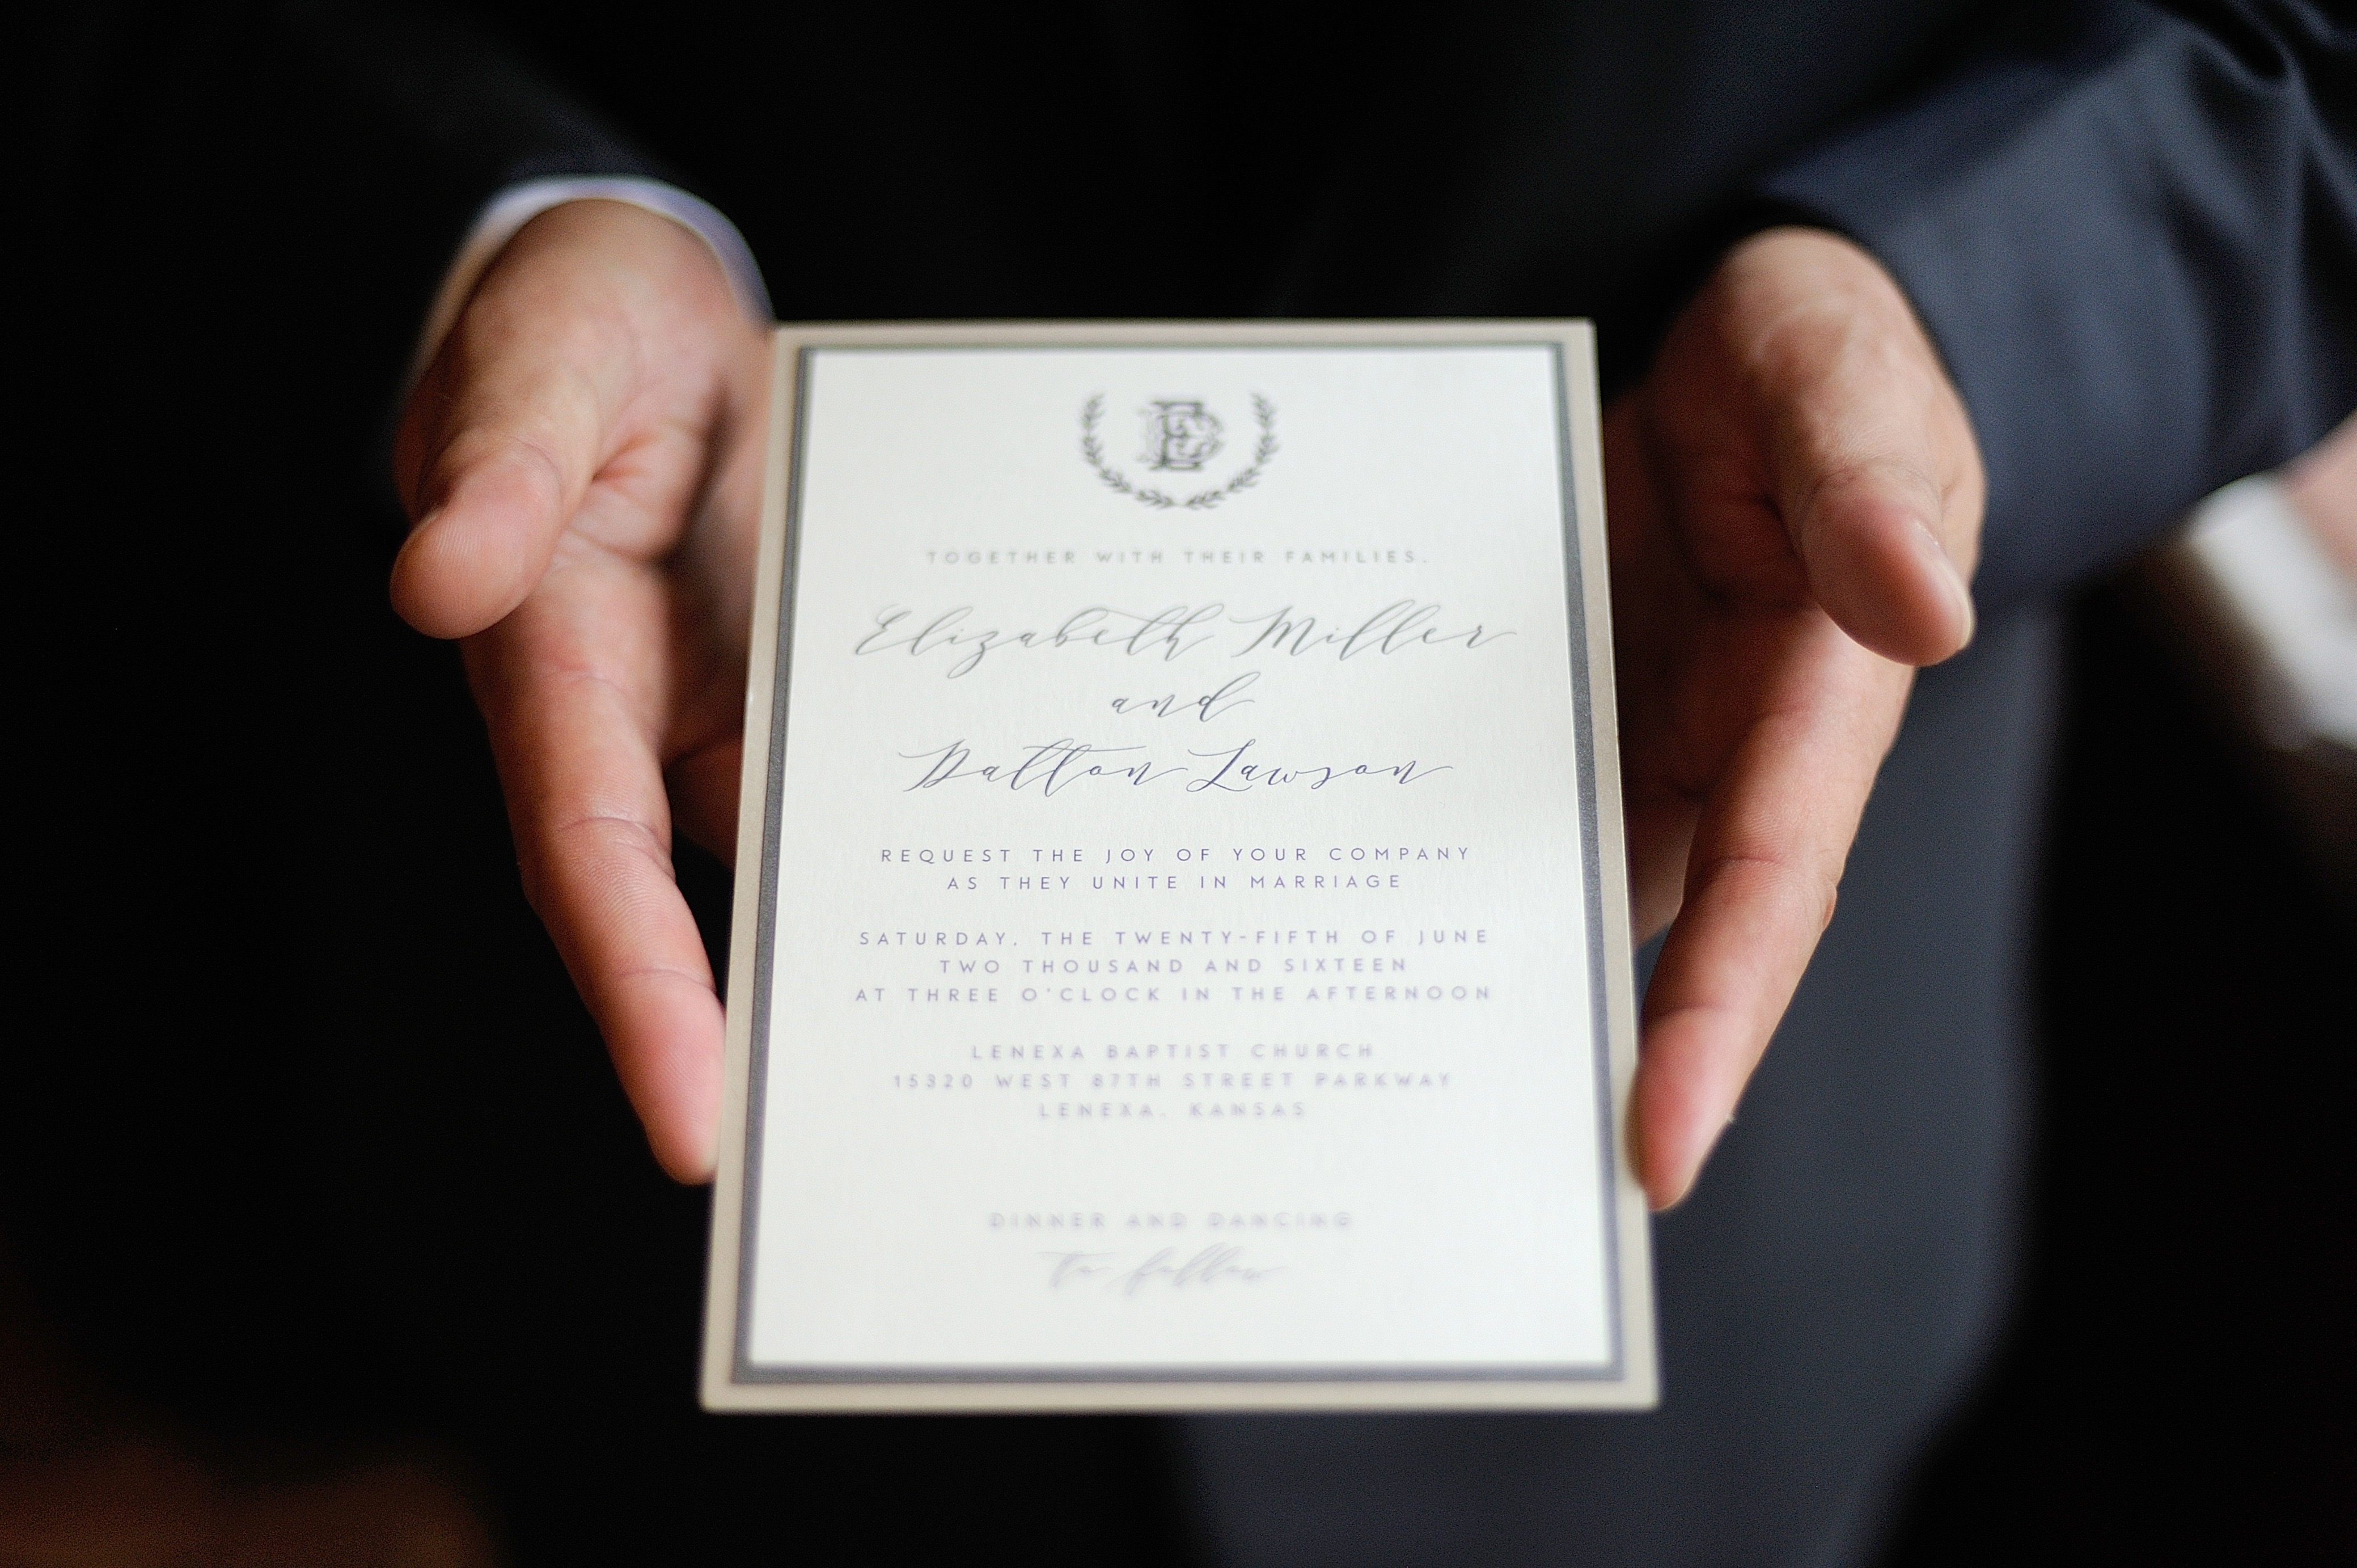 ED
TOGETHER WITH THEIR FAMILIES,
Elizabeth Miller
and
Dalton Lawson
REQUEST THE JOY OF YOUR COMPANY
AS THEY UNITE IN MARRIAGE
SATURDAY, THE TWENTY-FIFTH OF JUNE
TWO THOUSAND AND SIXTEEN
AT THREE O'CLOCK IN THE AFTERNOON
LENEXA BAPTIST CHURCH
15320 WEST 87TH STREET PARKWAY
LENEXA, KANSAS
DINNER AND DANCING
to follow